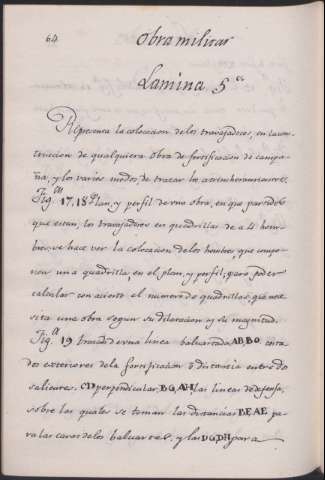 64
Obra militar
Lamina 5ª
Representa la colocacion de los travajadores, en la cons-
truccion de qualquiera obra de fortificacion de campa-
ña, y los varios modos, de trazar los atrincheramientos.
Figª 17, 18 Plan, y perfil de una obra, en que partidos
que estan, los travajadores en quadrillas de a 4 hom-
bres, se hace ver la colocacion de los hombres, que compo-
nen una quadrilla, en el plan, y perfil; para poder
calcular con acierto el numero de quadrillas, que nece-
sita una obra segun su dilatacion y su magnitud.
Figª 19 trazado de una linea baluartada, AB, BO. cos-
tados exteriores de la fortificacion o distancia entre dos
salientes. CD perpendicular, BG, AH, las lineas de defensa,
sobre las quales se toman las distancias BF, AE, pa-
ra las caras de los baluartes, y las DG, DH para